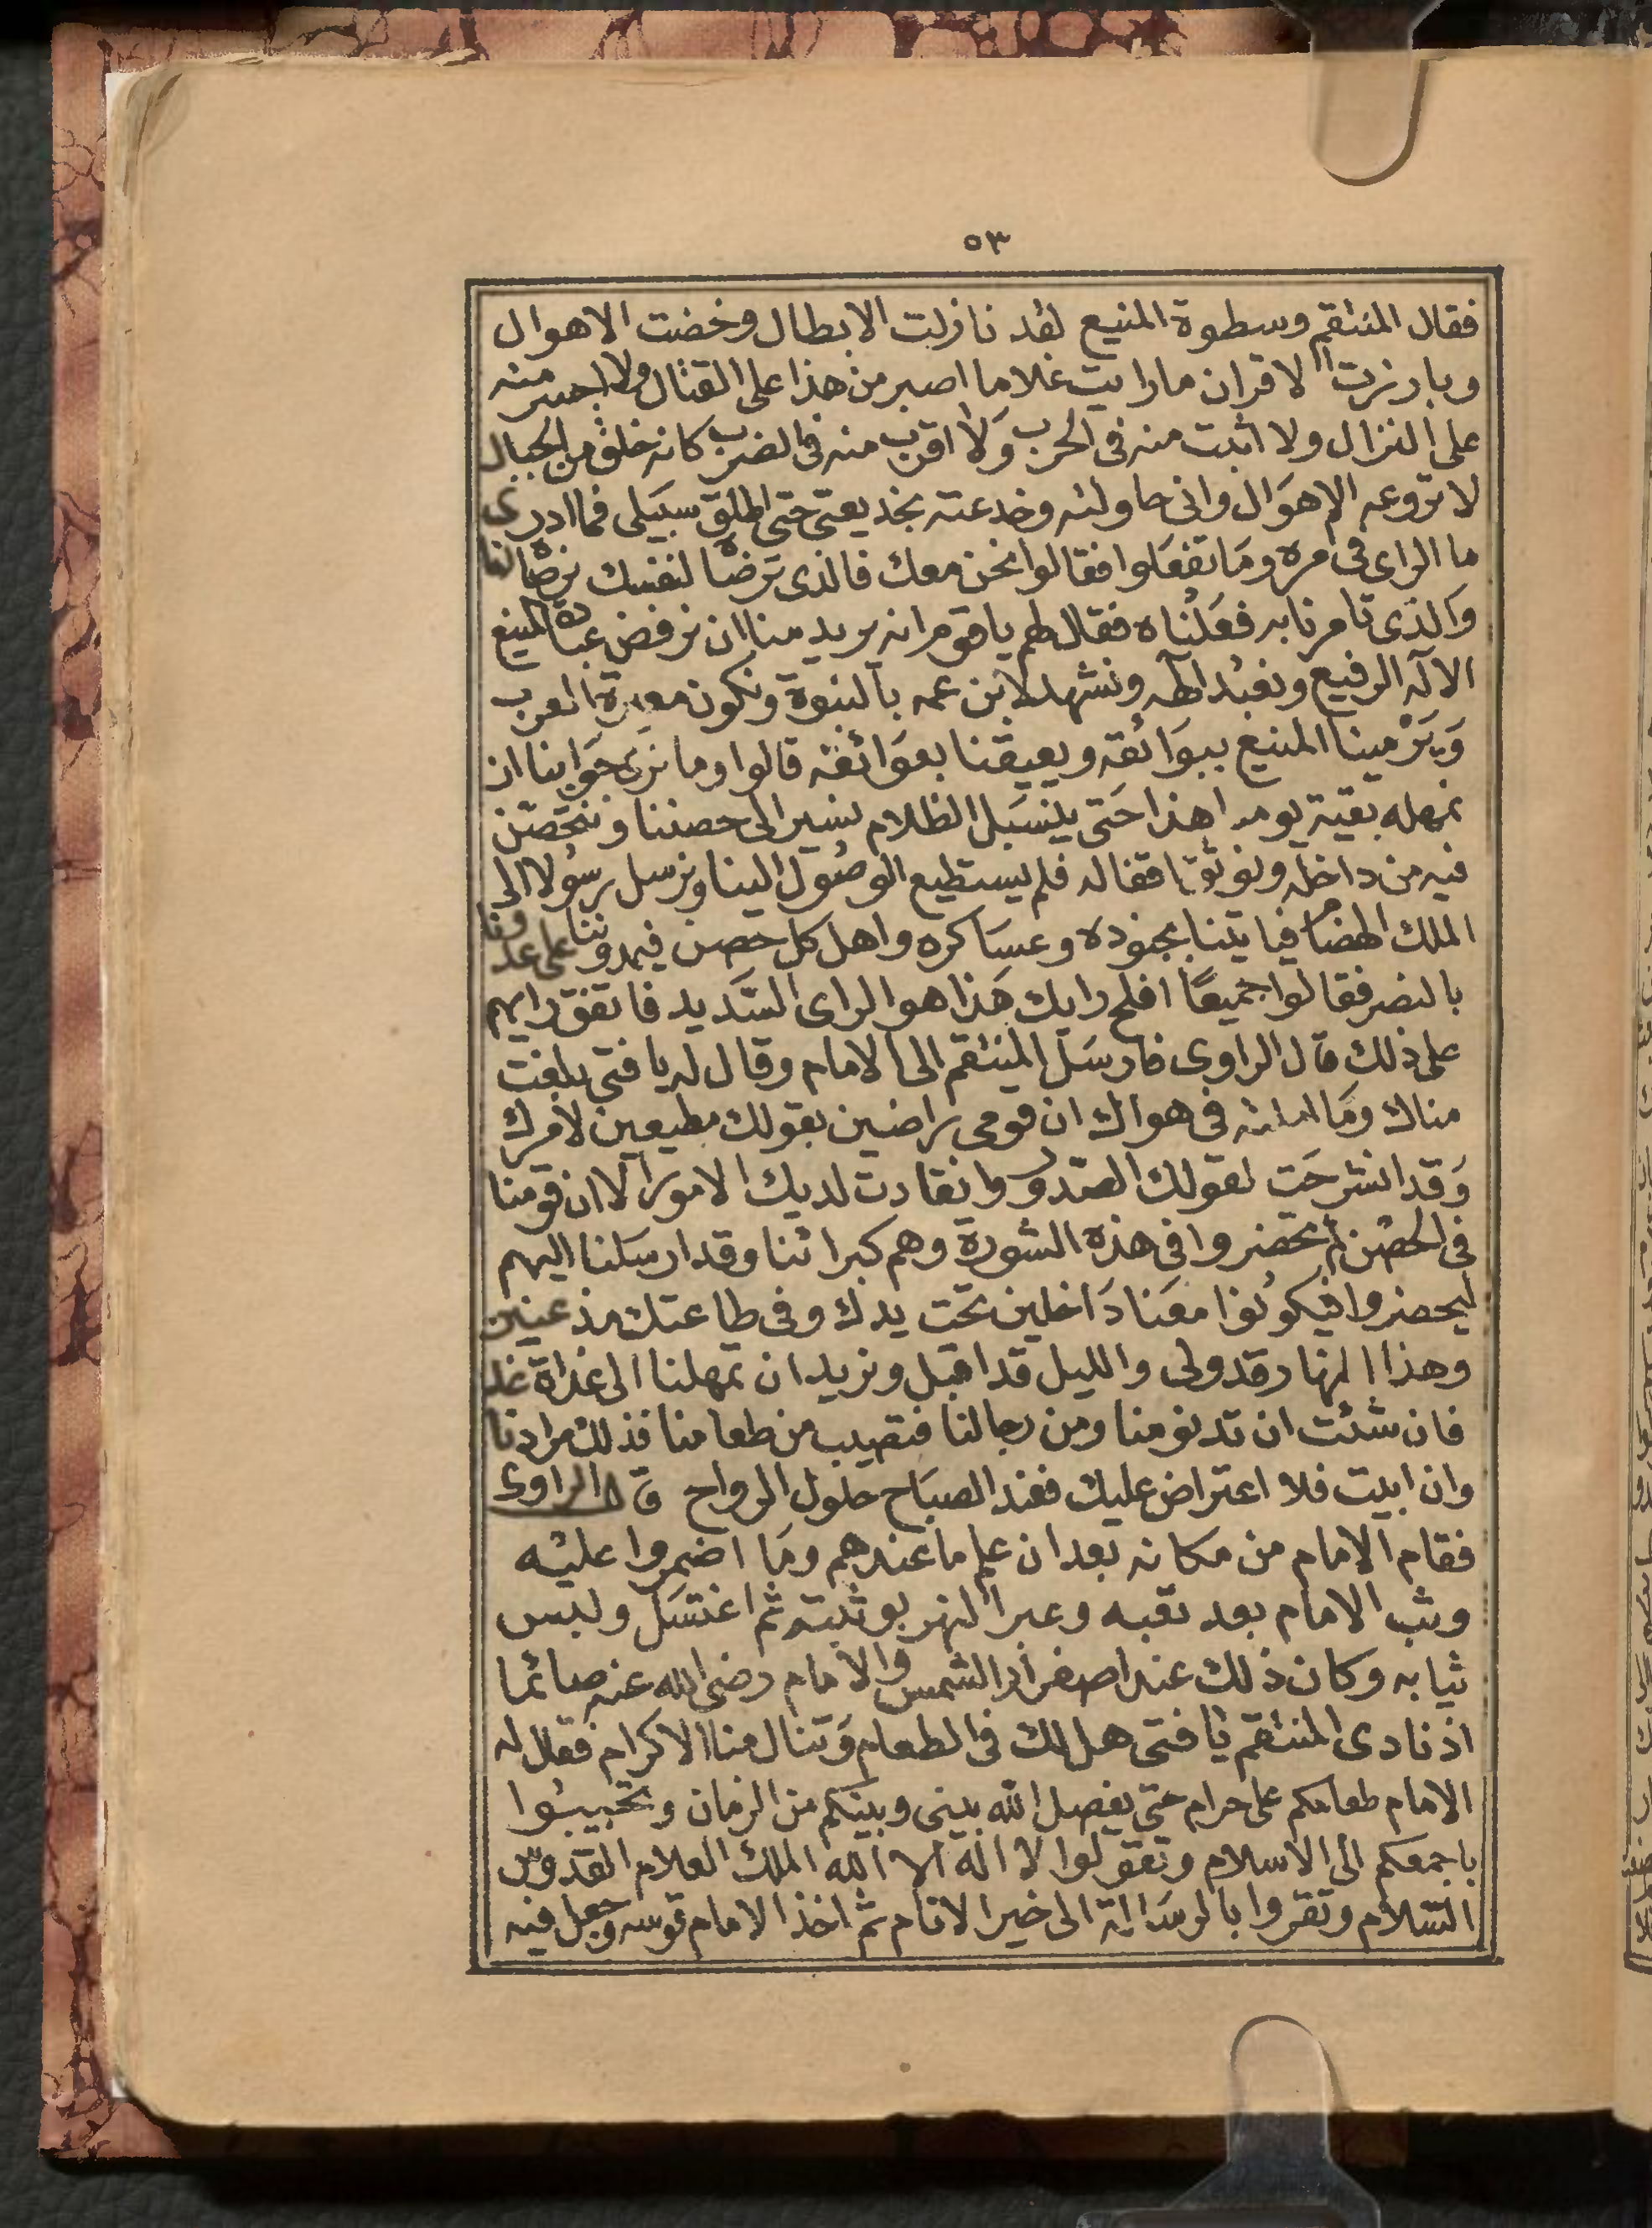 ٥٣
فقال المنتقم وسطوة المنيع لقد نازلت الابطال وخضت الاهوال
وبارزت الاقران مارايت غلاما اصبر من هذا على القتال ولا اجسر منه
على النزال ولا اثبت منه فى الحرب وَلا اقرب منه فى الضرب كانه خلق من الجبال
لا تروعه الاهوَال وانى حاولته وخدعته بخديعتى حتى اطلق سبَيلى فما ادرى
ما الراى فى مره ومَا تفعَلوا فقالوا نحن معك فالذى ترضاه لنفسك نرضاه لنا
وَالذى تامرنا به فعَلناه فقال لهم يا قوم انه يريد منا ان نرفض عبادة المنيع
الآله الرفيع ونعبد الهه ونشهد لابن عمه بالنبوة ونكون معيرة العرب
وَيَرْمينا المنيع ببوَائقه ويعيقنا بعوَائقه قالوا وما نرى جوَابنا ان
نمهله بقية يومه هذا حَتى ينسَبل الظلام نسير الى حصننا ونتحصَّن
فيه من داخله ونوثق اقفاله فلم يستطيع الوصُول الينا ونرسل رسُولا الى
الملك الهضام فياتينا بجنوده وعسَاكره واهل كل حصن فيمدوننا على عدونا
بالنصر فقالوا جميعًا افلح رايك هَذا هو الراى السَّديد فاتفق رايهم
على ذلك قال الراوى فارسَل المنتقم الى الامام وقال له يا فتى بلغت
مناك ومَا املته فى هواك ان قومى راضين بقولك مطيعين لامرك
وَقد انشرحَت لقولك الصّدور وانقادت لديك الامور الا ان قومنا
فى الحصْن لم يحضروا فى هذه الشورة وهم كبرائنا وقد ارسَلنا اليهم
ليحضروا فيكونوا معَنا دَاخلين تحت يدك وفى طاعتك مذعنين
وهذا النهار قد ولى والليل قد اقبل ونريد ان تمهلنا الى غداة غد
فان شئت ان تدنو منا ومن رجالنا فتصيب من طعامنا فذلك مرادنا
وان ابيت فلا اعتراض عليك فعند الصبَاح حلول الرواح قال الراوى
فقام الامام من مكانه بعد ان علم ما عندهم ومَا اضمروا عليه
وثب الامام بعد تعبه وعبر النهر بوثبته ثم اغتسَل ولبس
ثيابه وكان ذلك عند اصفرار الشمس والامام رضى الله عنه صائما
اذ نادى المنتقم يا فتى هل لك فى الطعام وَتنال منا الاكرام فقال له
الامام طعامكم على حرام حتى يفصل الله بينى وبينكم من الزمان وتجيبُوا
باجمعكم الى الاسلام وتقولوا لا اله الا الله الملك العلام القدوس
السَّلام وتقروا بالرسَالة الى خير الانام ثم اخذ الامام قوسه وجعل فيه